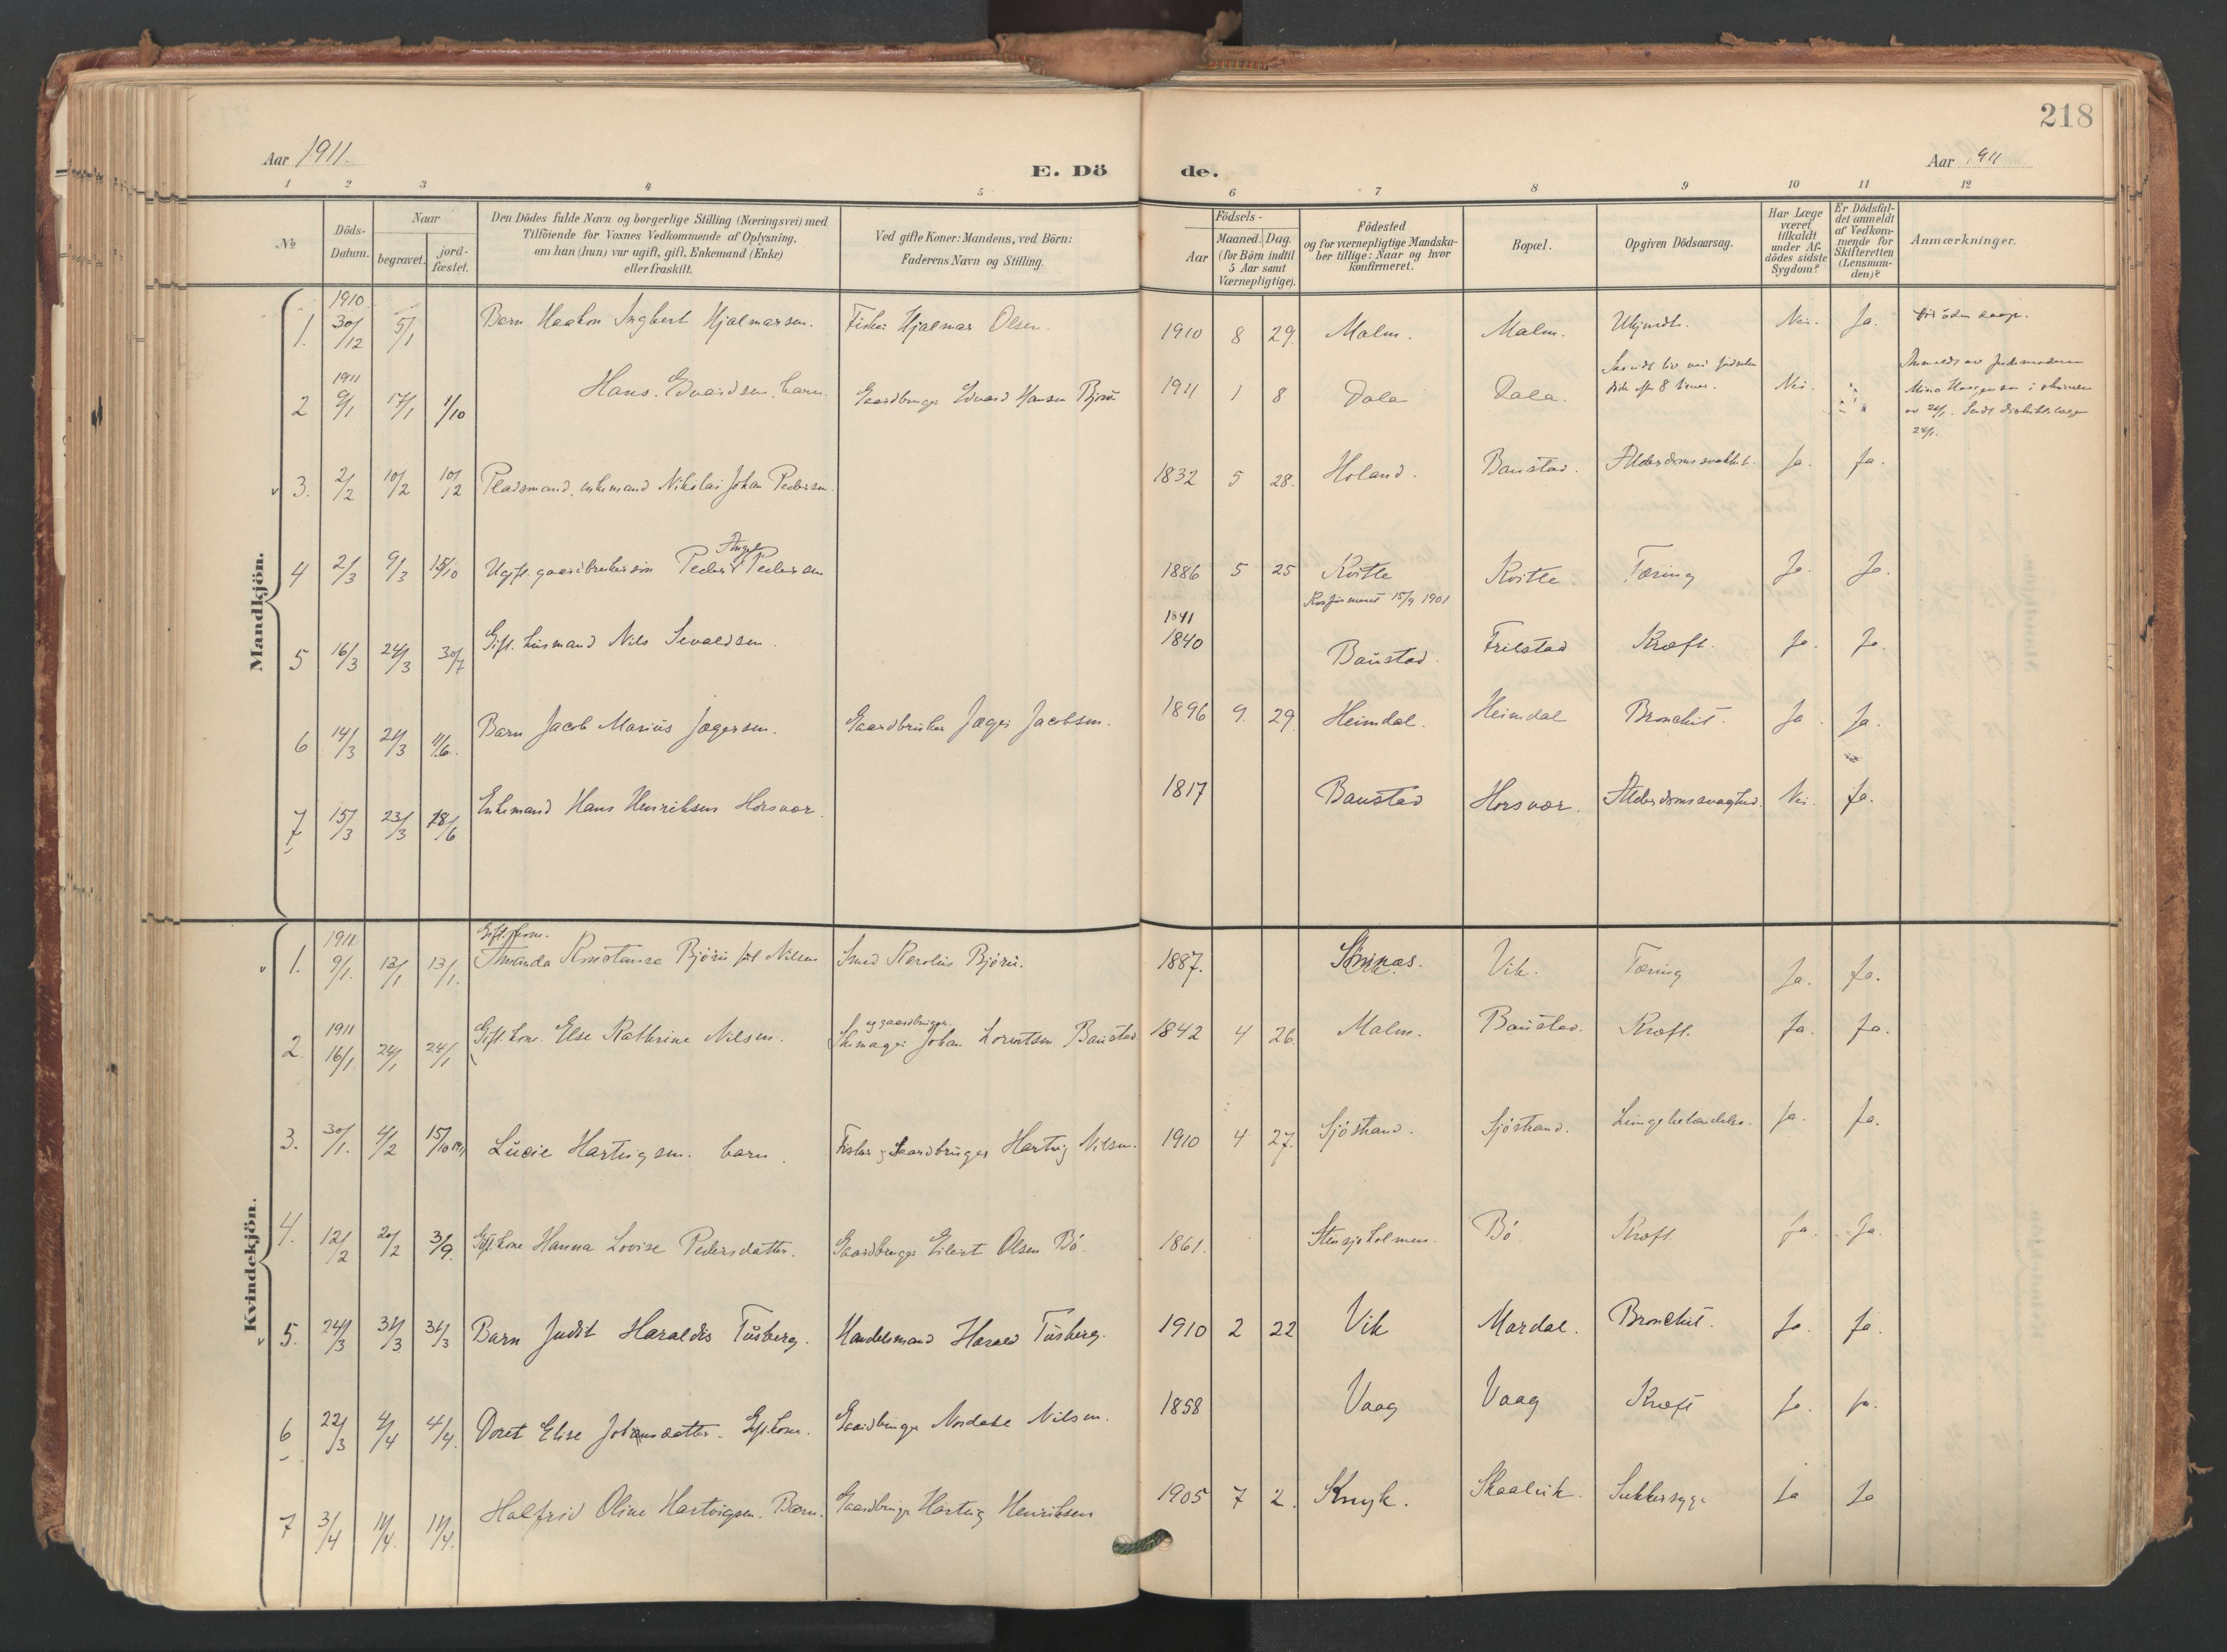 218
Aar 1911.
E. Döde.
Aar 1911
1 2 3 4 5 6 7 8 9 10 11 12
№
Döds-Datum.
Naar
begravet.
jord-fæstet.
Den Dödes fulde Navn og borgerlige Stilling (Næringsvei) med
Tilföiende for Voxnes Vedkommende af Oplysning,
om han (hun) var ugift, gift, Enkemand (Enke)
eller fraskilt.
Ved gifte Koner: Mandens, ved Börn:
Faderens Navn og Stilling.
Födsels-
Aar
Maaned. Dag.
(for Börn indtil
5 Aar samt
Værnepligtige).
Födested
og for værnepligtige Mandska-
ber tillige: Naar og hvor
konfirmeret.
Bopæl.
Opgiven Dödsaarsag.
Har Læge
været
tilkaldt
under Af-
dødes sidste
Sygdom?
Er Dödsfal-
det anmeldt
af Vedkom-
mende for
Skifteretten
(Lensman-
den)?
Anmærkninger.
Mandkjön.
1. 1910 30/12 5/1 Barn Haakon Ingbert Hjalmarsen. Fisker Hjalmar Olsen. 1910 8 29. Malm. Malm. Ukjendt. Nei. Ja.
2 1911 9/1 17/1 1/10 Hans Edvardsen, barn. Gaardbruger Edvard Hansen Bjøru 1911 1 8 Dala Dala. 8 timer. Nei.
24/1.
3. 2/2 10/2 10/12 Pladsmand, enkemand Nikolai Johan Pedersen. 1832 5 28. Holand. Baustad. Alderdomssvakhet. Ja. Ja.
4 2/3 9/3 15/10 Ugift. gaardbrukersøn Peder Angel Pedersen 1886 5 25 Kvitle Kvitle. Tæring Ja. Ja.
Konfirmeret 15/9 1901
5 16/3 24/3 30/7 Gift. husmand Nils Sevaldsen. 1841 1840 Baustad. Frilstad Kræft. Ja. Ja.
6 14/3 21/3 11/6. Barn Jacob Marius Jægersen. Gaardbruker Jæger Jacobsen. 1896 9. 29. Heimdal. Heimdal Bronchit. Ja. Ja.
7 15/3 23/3 18/6 Enkemand Hans Henriksen Horsvær. 1817 Baustad Horsvær. Alderdomssvaghed. Nei. Ja.
Kvindekjön.
1. 1911 9/1. 13/1 13/1. Gift. kone. Amanda Konstanse Bjøru født Nilsen Smed Karolius Bjøru. 1887. Vik. Tæring Ja. Ja.
2. 1911 16/1 24/1 24/1 Gift. kone. Else Kathrine Nilsen. Skomager og gaardbruger. Johan Lorentsen Baustad 1842 4 26. Malm. Baustad. Kræft. Ja. Ja.
3. 30/1. 4/2 15/10 1911 Lucie Hartvigsen. barn. Fisker og Gaardbruger Hartvig Nilsen. 1910 4 27. Sjøstrand. Sjøstrand. Lungebetændelse. Ja. Ja.
4. 12/2 20/2 3/9. Gift. kone Hanna Lovise Pedersdatter. Gaardbruger Eilert Olsen Bø. 1861. Stensjøholmen. Bø. Kræft. Ja. Ja.
5. 24/3 31/3 31/3 Barn Judit Haraldis Tusberg. Handelsmand Harald Tusberg. 1910 2 22 Vik Mardal. Bronchit. Ja. Ja.
6 22/3 4/4 4/4. Doret Elise Johansdatter. Gift. kone. Gaardbruger Nordahl Nilsen. 1858 Vaag Vaag Kræft Ja. Ja.
7 3/4 11/4. 11/4. Halfrid Oline Hartvigsen. Barn. Gaardbruger Hartvig Henriksen 1905 7 2. Knyk. Skaalvik. Sukkersyge Ja Ja